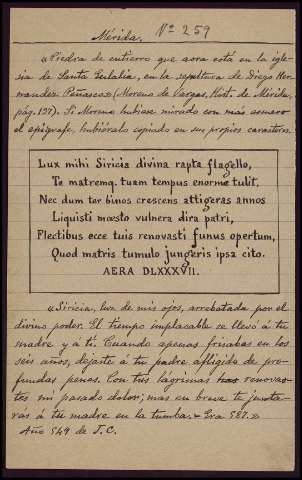 Mérida. Nº 259
«Piedra de entierro que aora está en la igle-
sia de Santa Eulalia, en la sepoltura de Diego Her-
nandez Peñasco» (Moreno de Vargas, Hist. de Mérida,
pág. 137). Si Moreno hubiese mirado con más esmero
el epígrafe, hubiéralo copiado en sus propios caractéres.
Lux mihi Siricia divina rapta flagello,
Te matremq. tuam tempus enorme tulit,
Nec dum ter binos crescens attigeras annos
Liquisti mœsto vulnera dira patri,
Flectibus ecce tuis renovasti funus opertum,
Quod matris tumulo jungeris ipsa cito.
AERA DLXXXVII.
«Siricia, luz de mis ojos, arrebatada por el
divino poder. El tiempo implacable se llevó á tu
madre y á tí. Cuando apenas frisabas en los
seis años, dejaste á tu padre afligido de pro-
fundas penas. Con tus lágrimas renovas-
tes mi pasado dolor; mas en breve te junta-
rás á tu madre en la tumba. – Era 587.»
Año 549 de J.C.